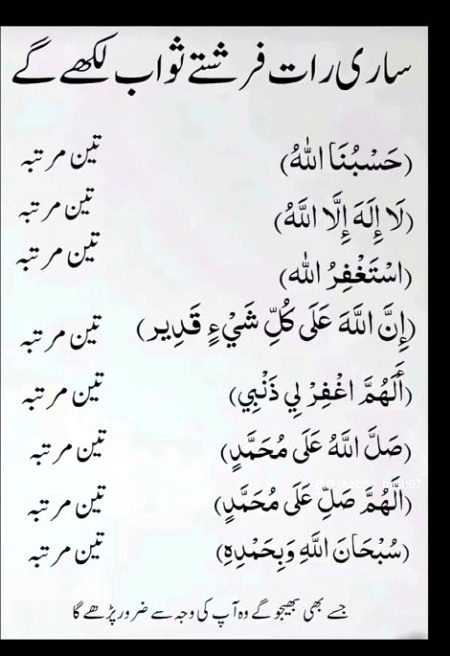 ساری رات فرشتے ثواب لکھے گے
(حَسْبُنَا اللهُ) تین مرتبہ
(لَا إِلَهَ إِلَّا اللَّهُ) تین مرتبہ
(اسْتَغْفِرُ الله) تین مرتبہ
(إِنَّ اللَّهَ عَلَى كُلِّ شَيْءٍ قَدِير) تین مرتبہ
(أَلَهُمَّ اغْفِرْ لِي ذَنْبِي) تین مرتبہ
(صَلَّ اللَّهُ عَلَى مُحَمَّدٍ) تین مرتبہ
(اَلَّهُمَّ صَلِّ عَلَى مُحَمَّدٍ) تین مرتبہ
(سُبْحَانَ اللَّهِ وَبِحَمْدِهِ) تین مرتبہ
جسے بھی بھیجو گے وہ آپ کی وجہ سے ضرور پڑھے گا